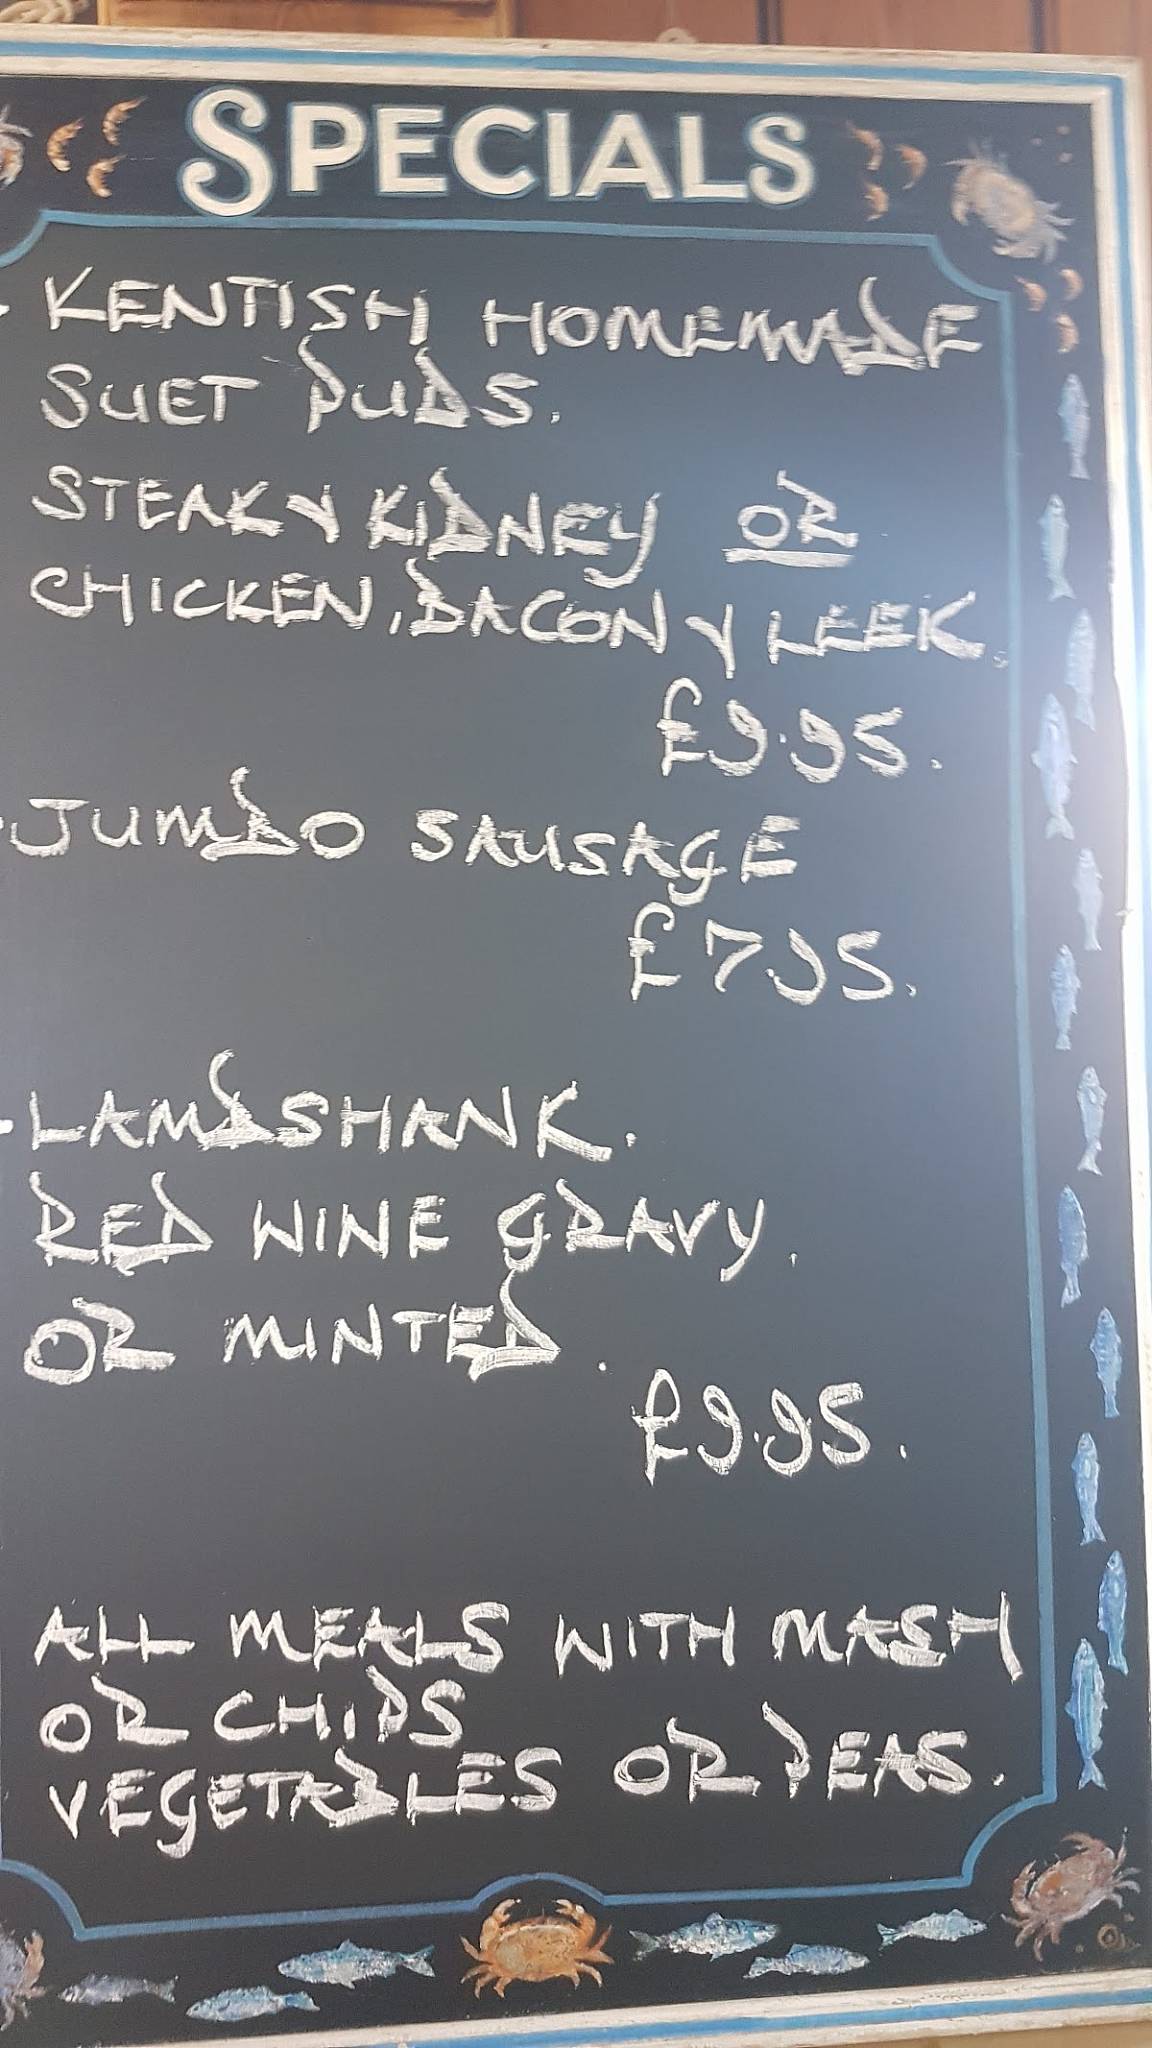 SPECIALS
- KENTISH HOMEMADE
SUET PUDS.
STEAK & KIDNEY OR
CHICKEN, BACON & LEEK.
£9.95.
- JUMBO SAUSAGE
£7.95.
- LAMBSHANK.
RED WINE GRAVY.
OR MINTED.
£9.95.
ALL MEALS WITH MASH
OR CHIPS
VEGETABLES OR PEAS.